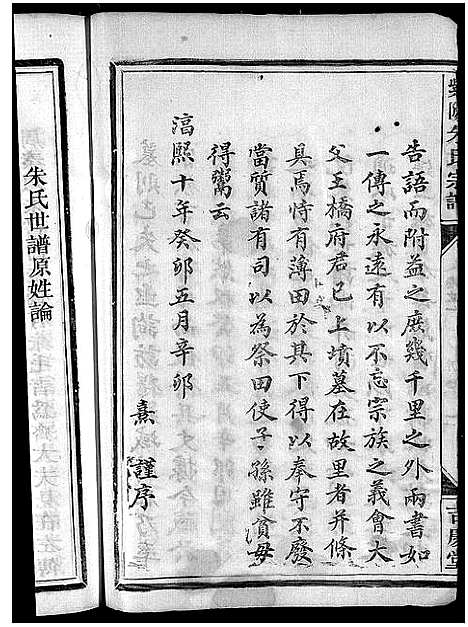 紫陽朱氏宗譜
告語而附益之庶幾千里之外兩書如
一傳之永遠有以不忘宗族之義會大
父王橋府君已上墳墓在故里者并條
具焉恃有薄田於其下得以奉守不廢
當質諸有司以為祭田使子孫雖貧毋
得鬻云
淳熙十年癸卯五月辛卯
熹謹序
朱氏世譜原姓論